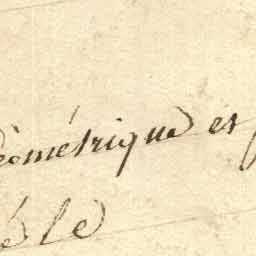 éométrique et
éle